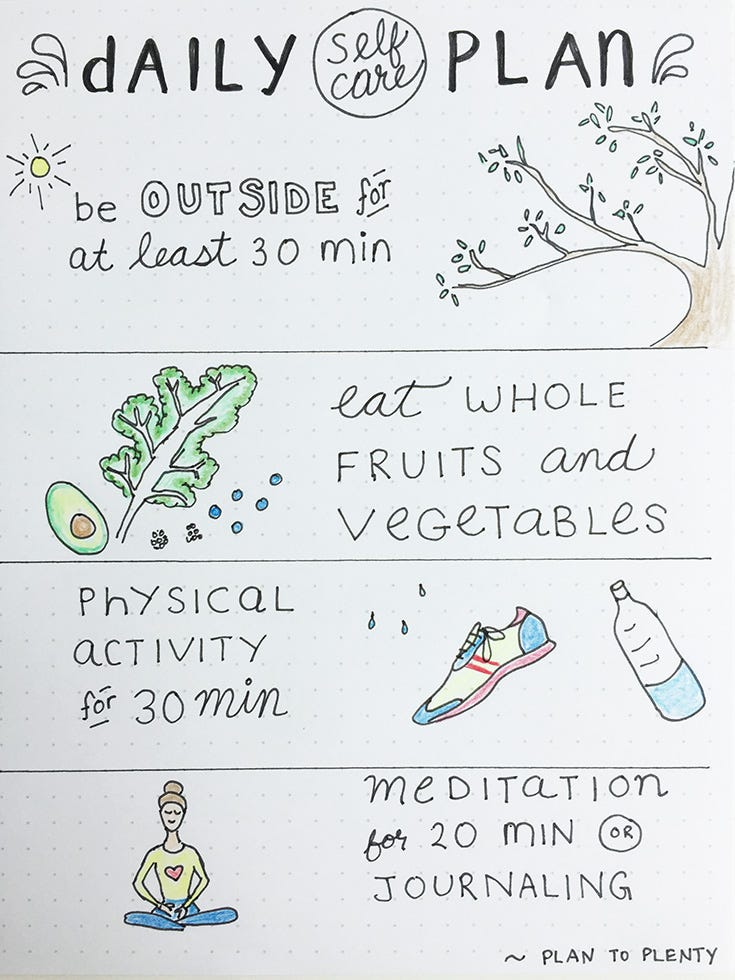 dAILY self care PLAN
be OUTSIDE for
at least 30 min
eat WHOLE
FRUITS and
VEGETABLES
PHYSICAL
ACTIVITY
for 30 min
MEDITATION
for 20 MIN OR
JOURNALING
~ PLAN TO PLENTY